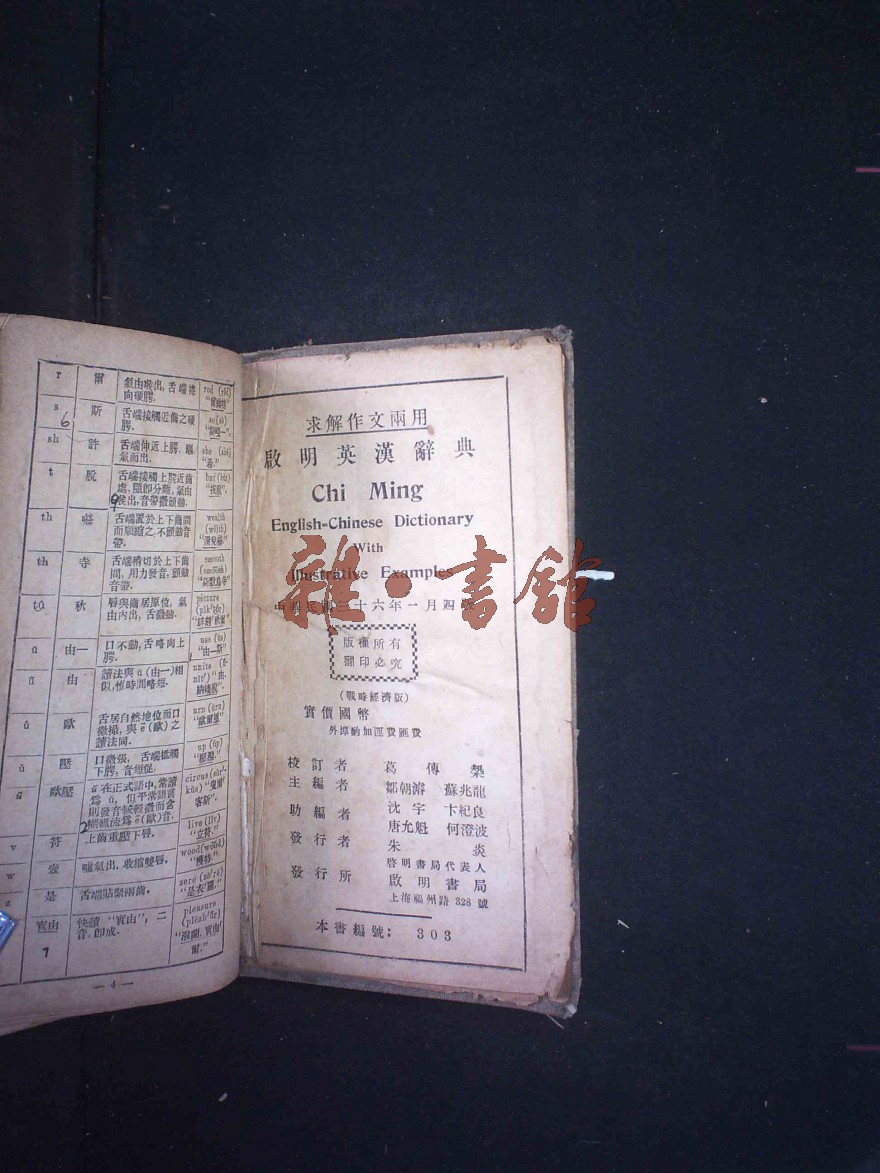 r 爾 氣由喉出,舌端捲 rod (rŏd)
向硬腭.
s 斯 舌端接觸近齒之硬 so(sō)
腭.
6
sh 許 舌端伸近上腭,
氣而出.
t 脫 舌端接觸上腭近齒 but (bŭt)
處,隨卽分離,氣由
喉出,音帶微顫動.
th 舌端置於上下齒間 wealth
而顫縮之,不顫動音
帶.
th 寺 舌端稍切於上下齒 smooth
間,用力發音,顫動
音帶.
tū 秋 唇與齒居原位,氣 picture
由內出,舌微動.
ū 由一 口不動,舌略向上 use
腭. "由一斯"
由 讀法與 ū (由一)相 unite
似,惟時間略短.
û 歐 舌居自然地位而口 urn (ûrn)
微撮,與 ẽ (歐)之
讀法同.
ŭ 壓 口微張,舌端抵觸 up (ŭp)
下腭,音短促.
歐壓 在正式語中,常讀 circus
爲 ŭ,但平常語言
則發音較輕微而含
糊輒流爲 ẽ (歐)音.
2
v 符 上齒重壓下唇. live (lĭv)
"立符."
w 壺 噓氣出,收縮雙唇. wood(wŏŏd)
z 是 舌端貼緊兩齒. zero (zē'rō)
實由 快讀 "實由",二 pleasure
音,卽成.
7
— 4 —
求解作文兩用
啟明英漢辭典
Chi Ming
English-Chinese Dictionary
With
Illustrative Examples
中華民國三十六年一月四版
版權所有
翻印必究
(戰時經濟版)
實價國幣
外埠酌加運費匯費
校訂者 葛傳槼
主編者 鄒朝濬 蘇兆龍
助編者 沈宇 卞紀良
唐允魁 何澄波
發行者 朱炎
啓明書局代表人
發行所 啟明書局
上海福州路 328 號
本書編號: 303
雜·書館